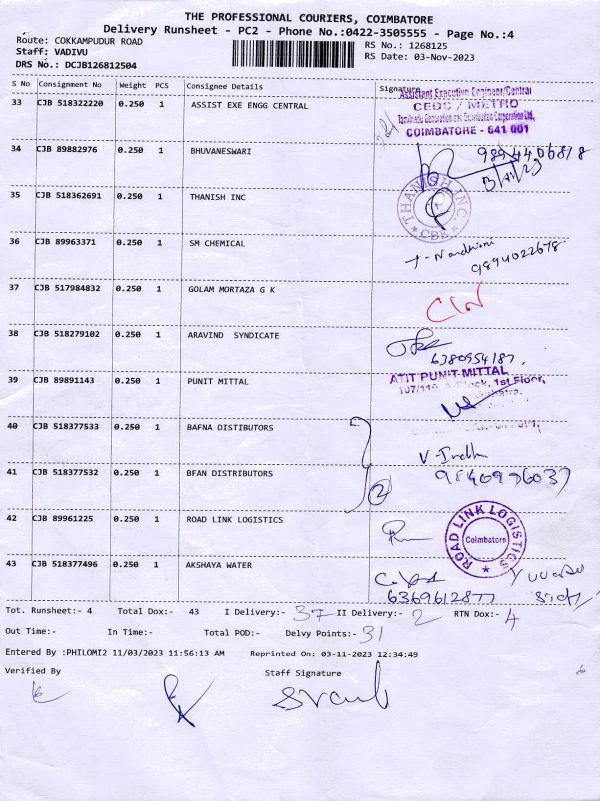 THE PROFESSIONAL COURIERS, COIMBATORE
Delivery Runsheet - PC2 - Phone No.:0422-3505555 - Page No.:4
Route: COKKAMPUDUR ROAD
RS No.: 1268125
Staff: VADIVU
RS Date: 03-Nov-2023
DRS No.: DCJB126812504
S No Consignment No Weight PCS Consignee Details Signature
33 CJB 518322220 0.250 1 ASSIST EXE ENGG CENTRAL
Assistant Executive Engineer/Central
CEDC / METRO
Tamilnadu Generation and Distribution Corporation Ltd.,
COIMBATORE - 641 001
34 CJB 89882976 0.250 1 BHUVANESWARI
9894406818
3/11/23
35 CJB 518362691 0.250 1 THANISH INC
THANISH INC.
CBE
36 CJB 89963371 0.250 1 SM CHEMICAL
9894022678
37 CJB 517984832 0.250 1 GOLAM MORTAZA G K
38 CJB 518279102 0.250 1 ARAVIND SYNDICATE
6380554187.
39 CJB 89891143 0.250 1 PUNIT MITTAL
ATIT PUNIT MITTAL
1st Floor,
40 CJB 518377533 0.250 1 BAFNA DISTIBUTORS
41 CJB 518377532 0.250 1 BFAN DISTRIBUTORS
2
9840976037
42 CJB 89961225 0.250 1 ROAD LINK LOGISTICS
ROAD LINK LOGISTICS
Coimbatore
43 CJB 518377496 0.250 1 AKSHAYA WATER
6369612877
Tot. Runsheet:- 4 Total Dox:- 43 I Delivery:- 37 II Delivery:- 2 RTN Dox:- 4
Out Time:- In Time:- Total POD:- Delvy Points:- 31
Entered By :PHILOMI2 11/03/2023 11:56:13 AM Reprinted On: 03-11-2023 12:34:49
Verified By Staff Signature